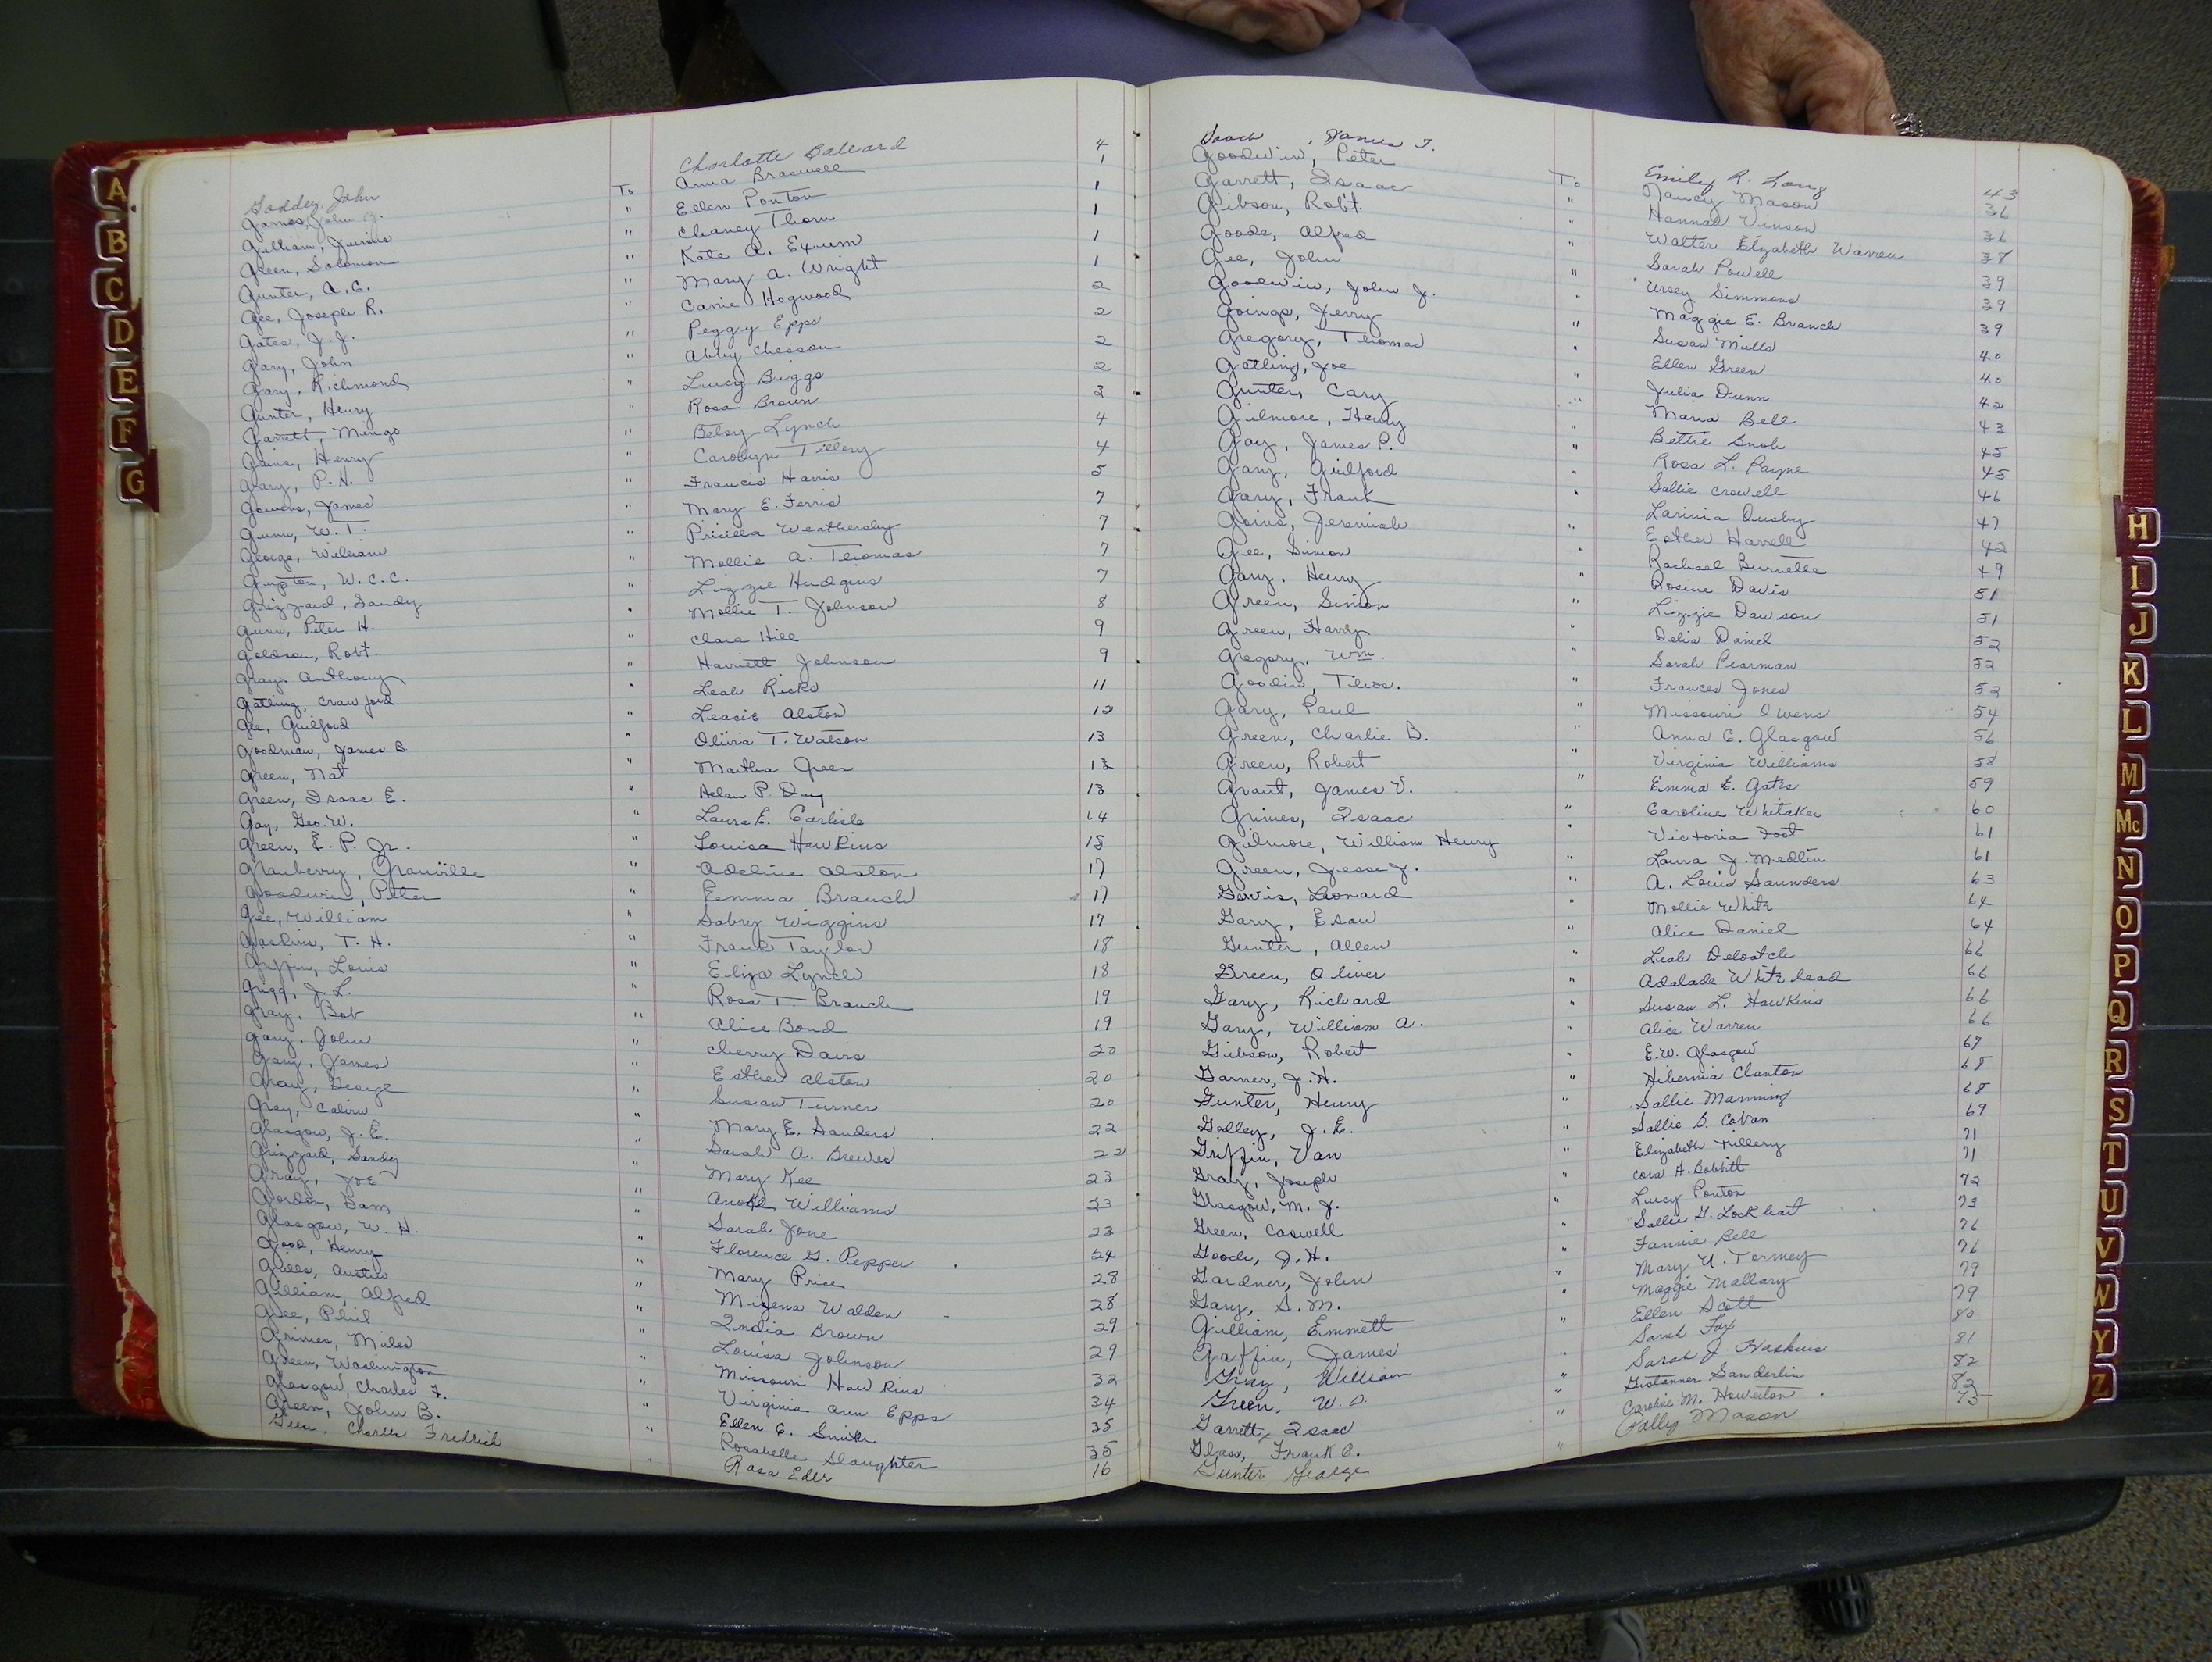 A
B
C
D
E
F
G
Godden, John Charlotte Ballard 4
Games, John G. To Anna Braswell 1
Gilliam, Junius " Ellen Ponton 1
Green, Solomon " Chaney Thorn 1
Gunter, A.C. " Kate A. Exum 1
Gee, Joseph R. " Mary A. Wright 1
Gates, J.J. " Carrie Hogwood 2
Gary, John " Peggy Epps 2
Gary, Richmond " Abby Chesson 2
Gunter, Henry " Lucy Briggs 2
Garrett, Mingo " Rosa Brown 3
Gains, Henry " Betsy Lynch 4
Gary, P.H. " Carolyn Tillery 4
Gowens, James " Francis Harris 5
Gunn, W.T. " Mary E. Ferris 7
George, William " Pricilla Weathersby 7
Gupton, W.C.C. " Mollie A. Thomas 7
Grizzard, Sandy " Lizzie Hudgins 7
Gunn, Peter H. " Mollie T. Johnson 8
Goldson, Robt. " Clara Hill 9
Gray, Anthony " Harriett Johnson 9
Gatling, Crawford " Leah Ricks 11
Gee, Guilford " Leacie Alston 12
Goodman, James B " Olivia T. Watson 13
Green, Nat " Martha Green 13
Green, Isaac E. " Helen P. Day 13
Gay, Geo. W. " Laura E. Carlisle 14
Green, E.P. Jr. " Louisa Hawkins 15
Granberry, Granville " Adeline Alston 17
Goodwin, Peter " Emma Branch 17
Gee, William " Sabry Wiggins 17
Gaskins, T.H. " Frank Taylor 18
Griffin, Louis " Eliza Lynch 18
Grigg, J.L. " Rosa T. Branch 19
Gray, Bob " Alice Bond 19
Gary, John " Cherry Davis 20
Gary, James " Esther Alston 20
Gray, George " Susan Turner 20
Gray, Calvin " Mary E. Sanders 22
Glasgow, J.E. " Sarah A. Brewer 22
Grizzard, Sandy " Mary Kee 23
Gray, Joe " Williams 23
Gordon, Sam " Sarah Jone 23
Glasgow, W.H. " Florence G. Pepper 24
Good, Henry " Mary Price 28
Gills, Austin " Mizena Walden 28
Gilliam, Alfred " India Brown 29
Gee, Phil " Louisa Johnson 29
Grimes, Miles " Missouri Hawkins 32
Green, Washington " Virginia Ann Epps 34
Glasgow, Charles F. " Ellen C. Smith 35
Green, John B. " Rosabelle Slaughter 35
Charles Fredrick " Rosa Eder 16
Gooch, James T. Emily R. Long 43
Goodwin, Peter To Nancy Mason 36
Garrett, Isaac " Hannah Vinson 36
Gibson, Robt. " Walter Elizabeth Warren 37
Goode, Alfred " Sarah Powell 39
Gee, John " Ursey Simmons 39
Goodwin, John J. " Maggie E. Branch 39
Goings, Jerry " Susan Mills 40
Gregory, Thomas " Ellen Green 40
Gatling, Joe " Julia Dunn 42
Gunter, Cary " Maria Bell 43
Gilmore, Henry " Bettie Snob 45
Gay, James P. " Rosa L. Payne 45
Gary, Guilford " Sallie Crowell 46
Gary, Frank " Larinia Ousby 47
Goins, Jeremiah " Esther Harrell 42
Gee, Simon " Rachael Burnette 49
Gary, Henry " Rosine Davis 51
Green, Simon " Lizzie Dawson 51
Green, Harry " Delia Daniel 52
Gregory, Wm. " Sarah Pearman 52
Goodin, Thos. " Frances Jones 52
Gary, Paul " Missouri Owens 54
Green, Charlie B. " Anna C. Glasgow 56
Green, Robert " Virginia Williams 58
Grant, James V. " Emma E. Gates 59
Grimes, Isaac " Caroline Whitaker 60
Gilmore, William Henry " Victoria Foot 61
Green, Jesse J. " Laura J. Medlin 61
Gervis, Leonard " A. Louis Saunders 63
Gary, Esau " Mollie White 64
Gunter, Allen " Alice Daniel 64
Green, Oliver " Leah Deloatch 66
Gary, Richard " Adalade Whitehead 66
Gary, William A. " Susan L. Hawkins 66
Gibson, Robert " Alice Warren 66
Garner, J.H. " E.W. Glasgow 67
Gunter, Henry " Hibernia Clanton 68
Godley, J.E. " Sallie Manning 68
Griffin, Van " Sallie B. Coban 69
Gray, Joseph " Elizabeth Tillery 71
Glasgow, M.J. " Cora H. Bobbitt 71
Green, Caswell " Lucy Ponton 72
Gooch, J.H. " Sallie G. Lockhart 73
Gardner, John " Fannie Bell 76
Gary, S.M. " Mary U. Tormey 76
Gilliam, Emmett " Maggie Mallary 79
Gaffin, James " Ellen Scott 79
Gray, William " Sarah Fox 80
Green, W.O. " Sarah J. Haskins 81
Garrett, Isaac " Gustanner Sanderlin 82
Glass, Frank C. " Caroline M. Howerton 82
Gunter George " Polly Mason 75
H
I
J
K
L
M
Mc
N
O
P
Q
R
S
T
U
V
W
Y
Z